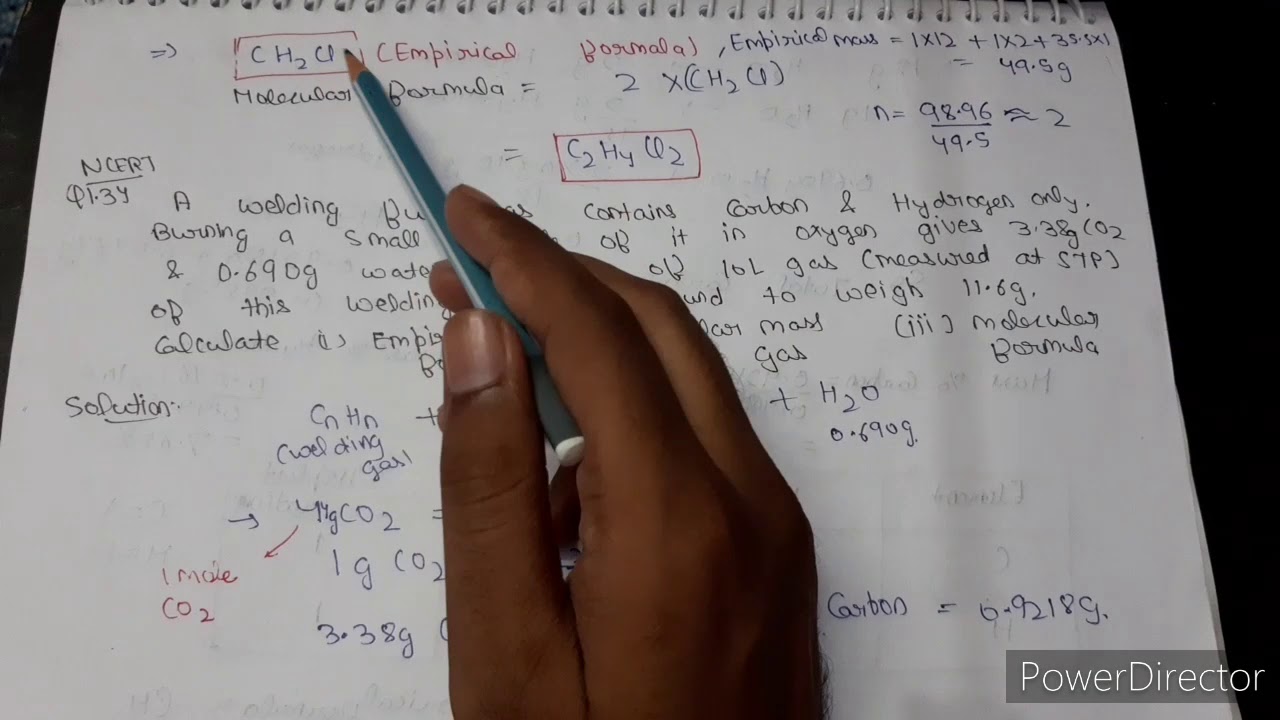 ⇒ CH2Cl (Empirical Formala), Empirical mass = 1×12 + 1×2 + 35.5×1
= 49.5g
Molecular Formula = 2 ×(CH2Cl)
n = 98.96/49.5 ≈ 2
= C2H4Cl2
NCERT
Q1.34 A welding contains Carbon & Hydrogen only.
Burning a small of it in oxygen gives 3.38g CO2
& 0.690g of 10L gas (measured at STP)
of this to weigh 11.6g.
Calculate i) mass (iii) molecular
gas Formula
Solution:-
CnHn + + H2O
(welding gas) 0.690g.
→ 44g CO2 =
1 mole CO2
1g CO2
3.38g Carbon = 0.9218g.
PowerDirector